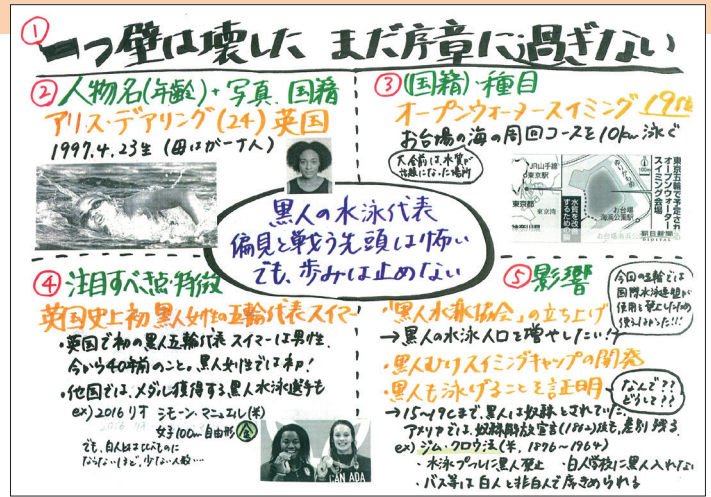 ① 一つ壁は壊した まだ序章に過ぎない
② 人物名(年齢)+写真、国籍
アリス・デアリング(24) 英国
1997.4.23生 (母はガーナ人)
③ (国籍)・種目
オープンウォータースイミング 19位
お台場の海の周回コースを10km泳ぐ
大会前は、水質が
話題になった場所
JR山手線
東京駅
東京都
東京湾
神奈川県
水質を改善するための膜
お台場
海浜公園駅
東京五輪で予定される
オープンウォーター
スイミング会場
朝日新聞
DIGITAL
黒人の水泳代表
偏見と戦う先頭は怖い
でも、歩みは止めない
④ 注目すべき点・特徴
英国史上初 黒人女性の五輪代表スイマー
・英国で初の黒人五輪代表スイマーは男性、
今から40年前のこと。黒人女性では初!
・他国では、メダル獲得する黒人水泳選手も
ex) 2016 リオ シモーン・マニュエル(米)
女子100m自由形 金
でも、白人とは比べものに
ならないほど、少ない人数…
CANADA
⑤ 影響
今回の五輪では
国際水泳連盟が
使用を禁止したため
使えなかった!!
・「黒人水泳協会」の立ち上げ
→黒人の水泳人口を増やしたい!
・黒人むけスイミングキャップの開発
・黒人も泳げることを証明
なんで??
どうして??
→15~19cまで、黒人は奴隷とされていた。
アメリカでは、奴隷解放宣言(1862)後も、差別残る
ex) ジム・クロウ法(米、1876~1964)
・水泳プールに黒人禁止 ・白人学校に黒人入れない
・バス等は白人と非白人で席きめられる